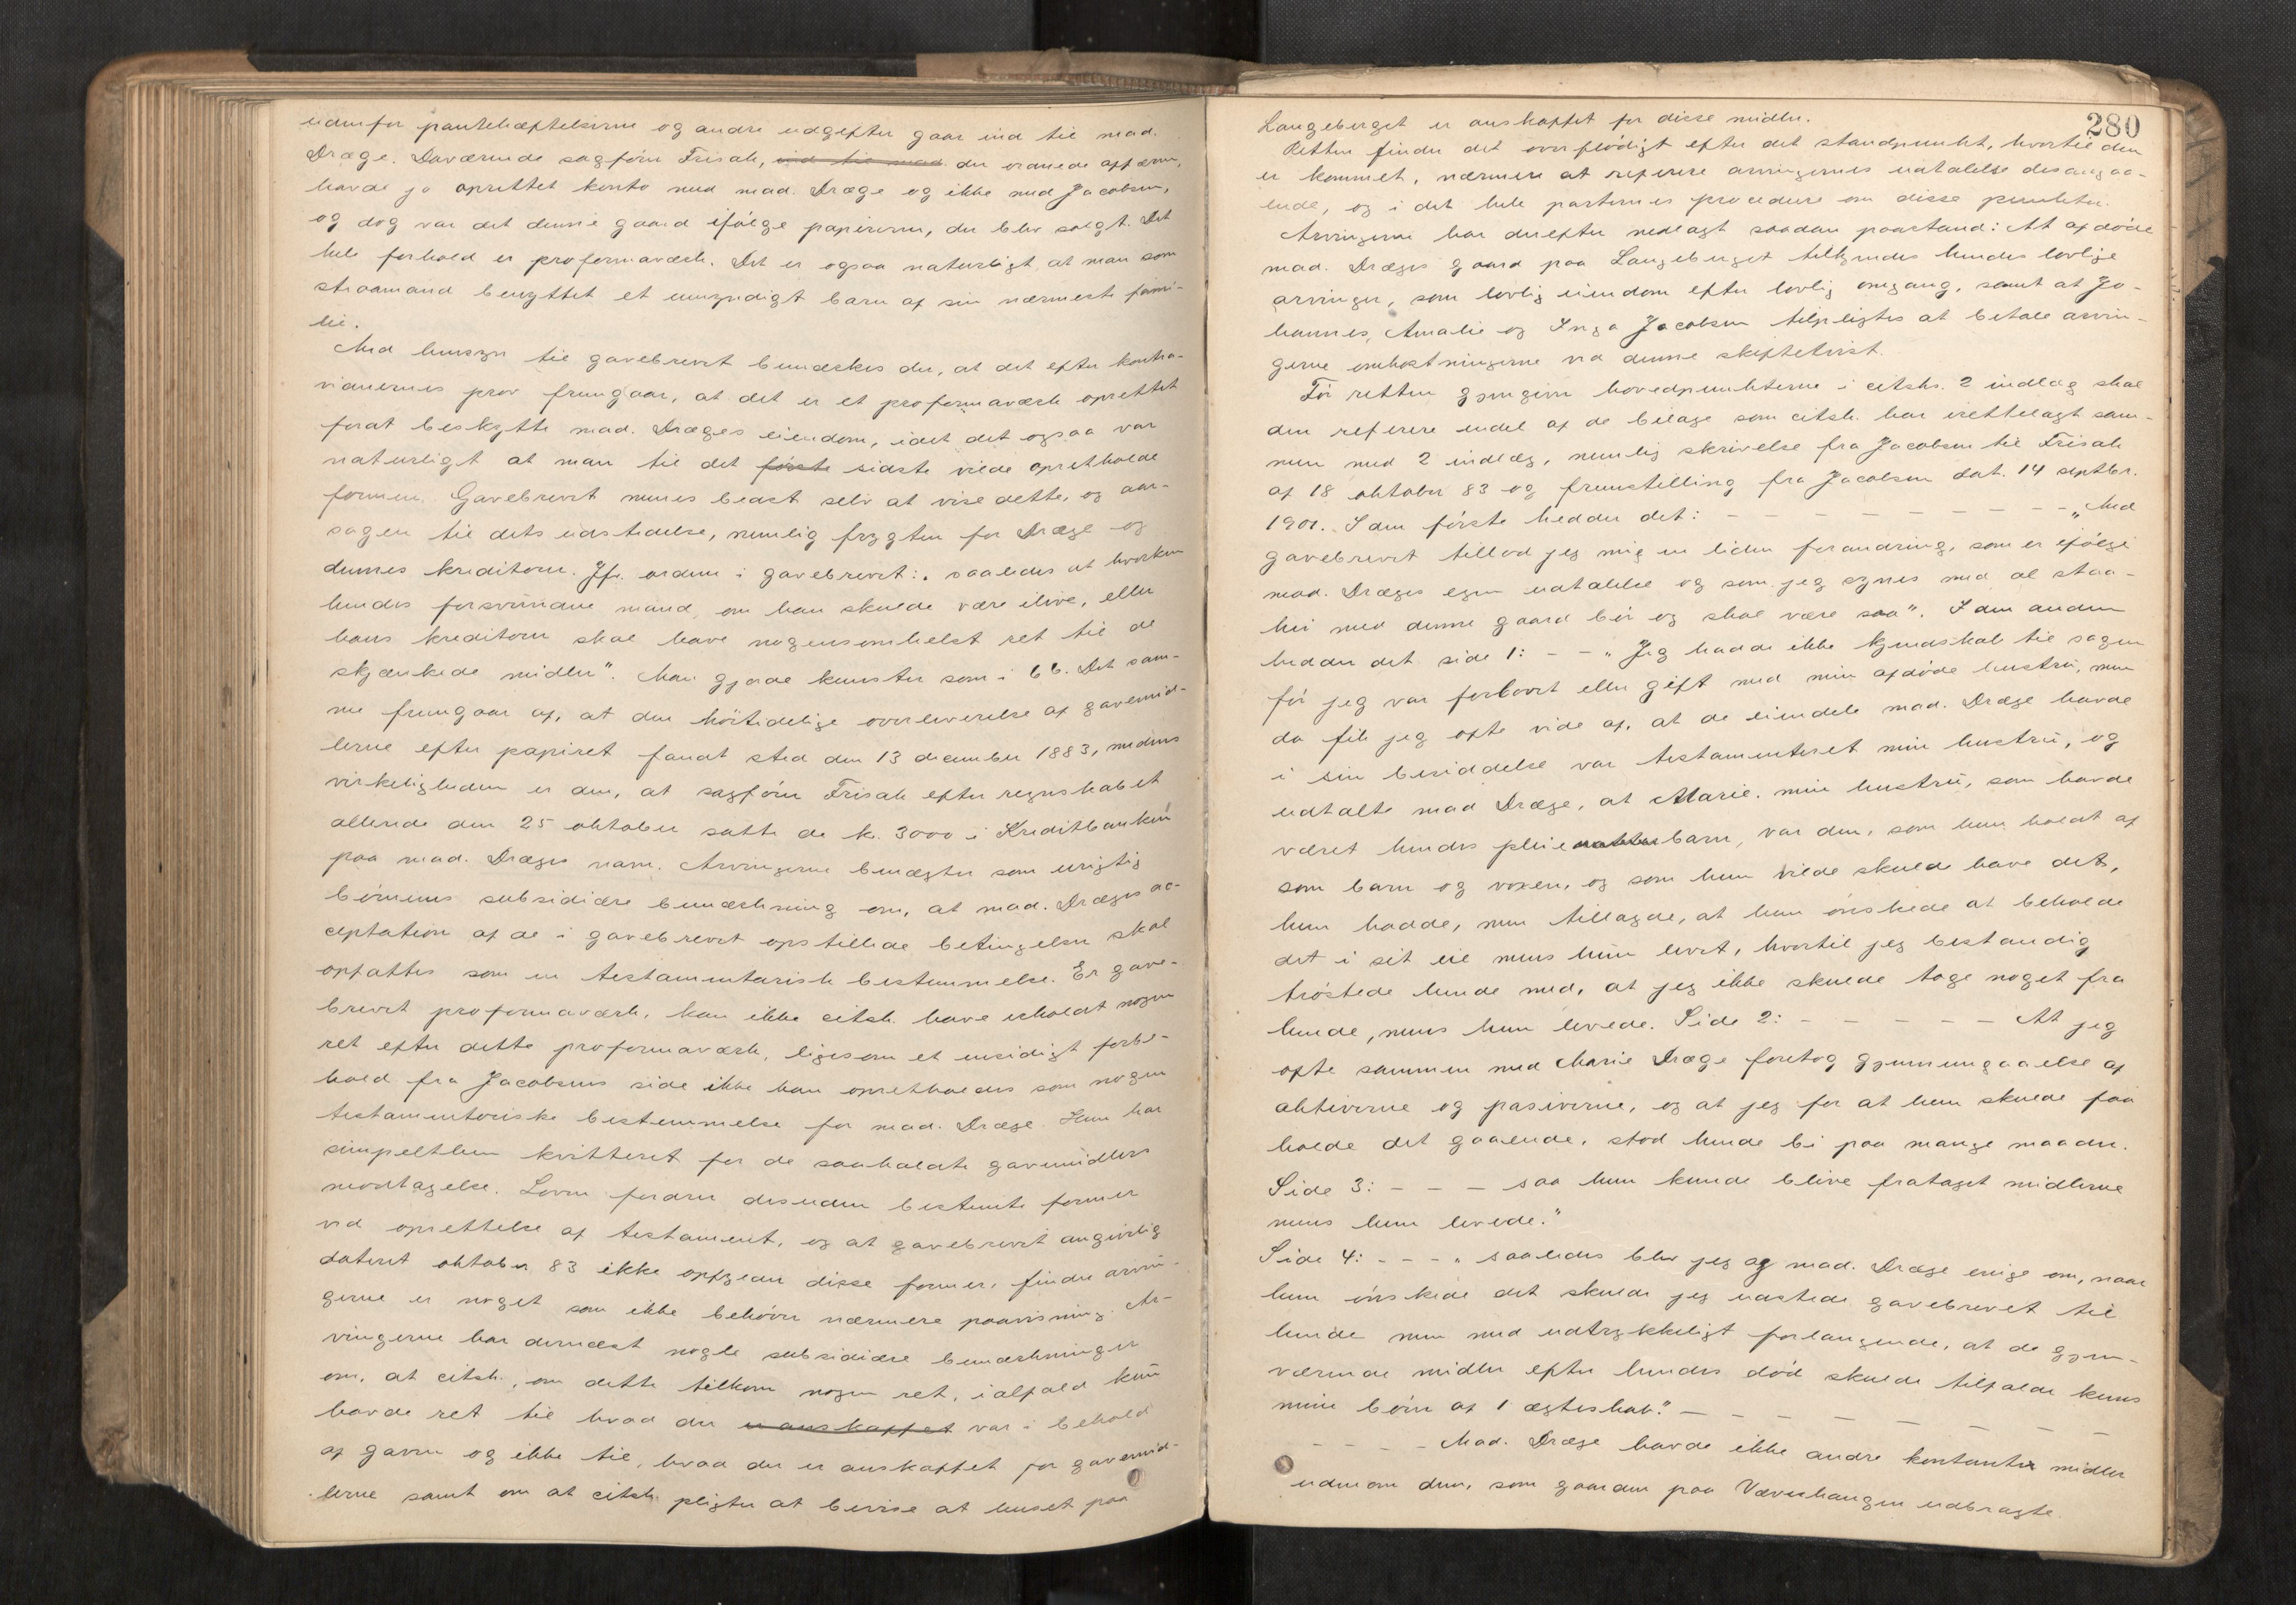 udenfor pantehæftelserne og andre udgifter gaar ind til mad.
Dræge. Daværende sagfører Frisak, ind til mad. der ordnede affæren,
havde jo oprettet konto med mad. Dræge og ikke med Jacobsen,
og dog var det denne gaard ifølge papirerne, der blev solgt. Det
hele forhold er proformaværk. Det er ogsaa naturligt at man som
straamand benyttet et umyndigt barn af sin nærmeste fami-
lie.
Med hensyn til gavebrevet bemerkes der, at det efter kontra-
vidnernes prov fremgaar, at det er et proformaværk oprettet
forat beskytte mad. Dræges eiendom, idet det ogsaa var
naturligt at man til det første sidste vilde opretholde
formen. Gavebrevet menes bedst selv at vise dette, og aar-
sagen til dets udstedelse, nemlig frygten for Dræge og
dennes kreditorer. Jfr. ordene i gavebrevet: „saaledes at hverken
hendes forsvundne mand, om han skulde være ilive, eller
hans kreditorer skal have nogensomhelst ret til de
skjænkede midler". Man gjorde kunster som i 66. Det sam-
me fremgaar af, at den høitidelige overleverelse af gavemid-
lerne efter papiret fandt sted den 13 december 1883, medens
virkeligheden er den, at sagfører Frisak efter regnskabet
allerede den 25 oktober satte de k. 3000 i Kreditbanken
paa mad. Dræges navn. Arvingerne benægter som urigtig
børnenes subsidiære bemerkning om, at mad. Dræges ac-
ceptation af de i gavebrevet opstillede betingelser skal
opfattes som en testamentarisk bestemmelse. Er gave-
brevet proformaværk, kan ikke citsk. have erholdt nogen
ret efter dette proformaværk, ligesom et ensidigt forbe-
hold fra Jacobsens side ikke kan opretholdes som nogen
testamentariske bestemmelse for mad. Dræge. Hun har
simpelthen kvitteret for de saakaldte gavemidlers
modtagelse. Loven fordrer desuden bestemte former
ved oprettelse af testament, og at gavebrevet angivelig
dateret oktober 83 ikke opfylder disse former, finder arvin-
gerne er noget som ikke behøver nærmere paavisning. Ar-
vingerne har dernæst nogle subsidiære bemerkninger
om, at citsk., om dette tilkom nogen ret, ialfald kun
havde ret til hvad der er anskaffet var i behold
af gaven og ikke til, hvad der er anskaffet for gavemid-
lerne samt om at citsk. pligter at bevise at huset paa
280
Langeberget er anskaffet for disse midler.
Retten finder det overflødigt efter det standpunkt, hvortil den
er kommet, nærmere at referere arvingernes udtalelse desangaa-
ende, og i det hele parternes procedure om disse punkter.
Arvingerne har derefter nedlagt saadan paastand: At afdøde
mad. Dræges gaard paa Langeberget tilkjendes hendes lovlige
arvinger, som lovlig eiendom efter lovlig omgang, samt at Jo-
hannes, Amalie og Inga Jacobsen tilpligtes at betale arvin-
gerne omkostningerne ved denne skiftetvist.
Før retten gjengiver hovedpunkterne i citsks. 2 indlæg skal
den referere endel af de bilage som citsk. har irettelagt sam-
men med 2 indlæg, nemlig skrivelse fra Jacobsen til Frisak
af 18 oktober 83 og fremstilling fra Jacobsen dat. 14 septbr.
1901. I den første hedder det: - - - - - - - - - „Med
gavebrevet tillod jeg mig en liden forandring, som er ifølge
mad. Dræges egen udtalelse og som jeg synes med al staa-
hei med denne gaard bør og skal være saa". I den anden
hedder det side 1: - - „Jeg hadde ikke kjendskab til sagen
før jeg var forlovet eller gift med min afdøde hustru, men
da fik jeg ofte vide af, at de eiendele mad. Dræge havde
i sin besiddelse var testamenteret min hustru, og
udtalte mad Dræge, at Marie, min hustru, som havde
været hendes pleiebarn, var den, som hun holdt af
som barn og voxen, og som hun vilde skulde have det,
hun hadde, men tillagde, at hun ønskede at beholde
det i sit eie mens hun levet, hvortil jeg bestandig
trøstede hende med, at jeg ikke skulde tage noget fra
hende, mens hun levede. Side 2: - - - - - At jeg
ofte sammen med Marie Dræge foretog gjennemgaaelse af
aktiverne og pasiverne, og at jeg for at hun skulde faa
holde det gaaende, stod hende bi paa mange maader.
Side 3: - - - saa hun kunde blive frataget midlerne
mens hun levede."
Side 4: - - - „saaledes blev jeg og mad. Dræge enige om, naar
hun ønskede det skulde jeg udstede gavebrevet til
hende men med udtrykkeligt forlangende, at de gjen-
værende midler efter hendes død skulde tilfalde kuns
mine børn af 1 ægteskab." - - - - - - -
- - - - Mad. Dræge havde ikke andre kontante midler
udenom dem, som gaarden paa Væverhaugen udbragte.